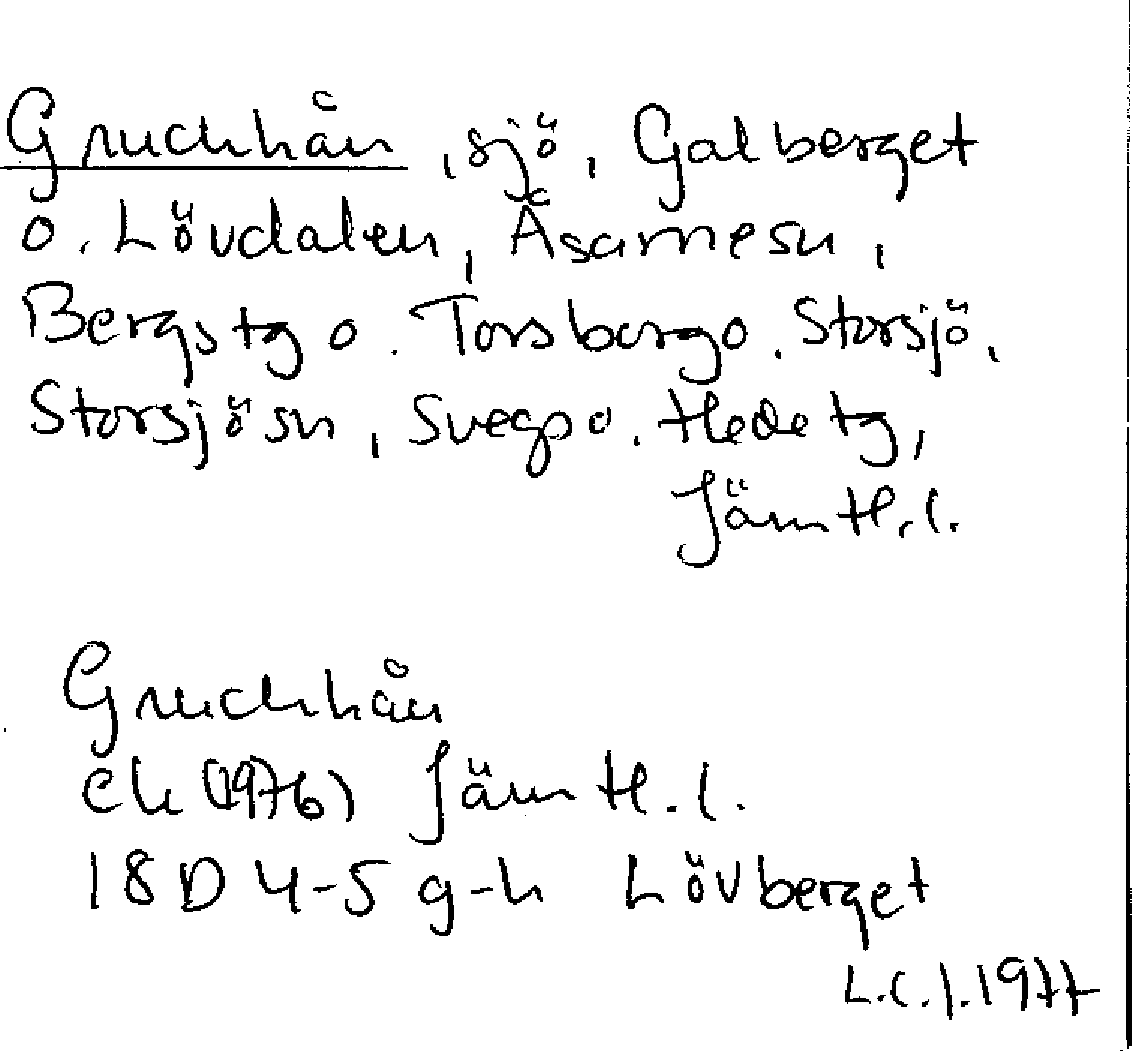 Gruckhån, sjö, Galberget
o. Lövdalen, Åsarnesn,
Bergstg o. Torsborgo. Storsjö,
Storsjösn, Svegpo. Hede tg,
Jämtl. l.
Gruckhån
ek (1976) Jämtl. l.
18D 4-5 g-h Lövberget
L.C.J. 1977